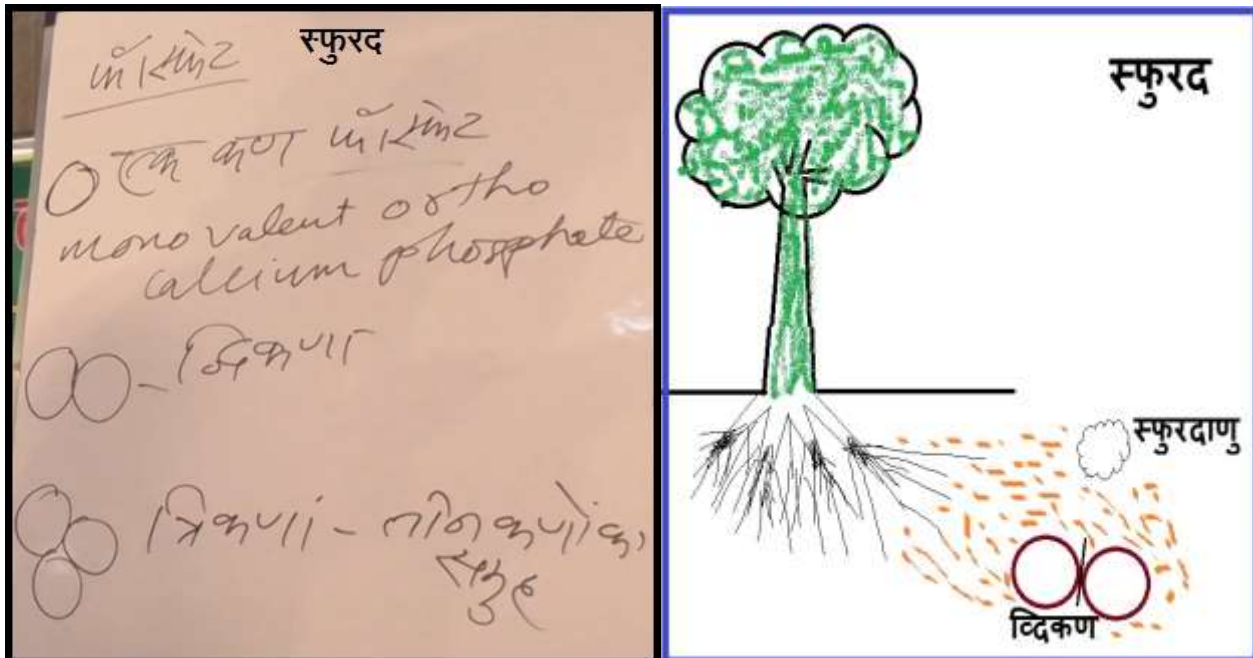 स्फुरद
फॉस्फेट
एक कण फॉस्फेट
monovalent ortho
calcium phosphate
द्विकण
त्रिकण - तीन कणों का
समुह
स्फुरद
स्फुरदाणु
व्दिकण